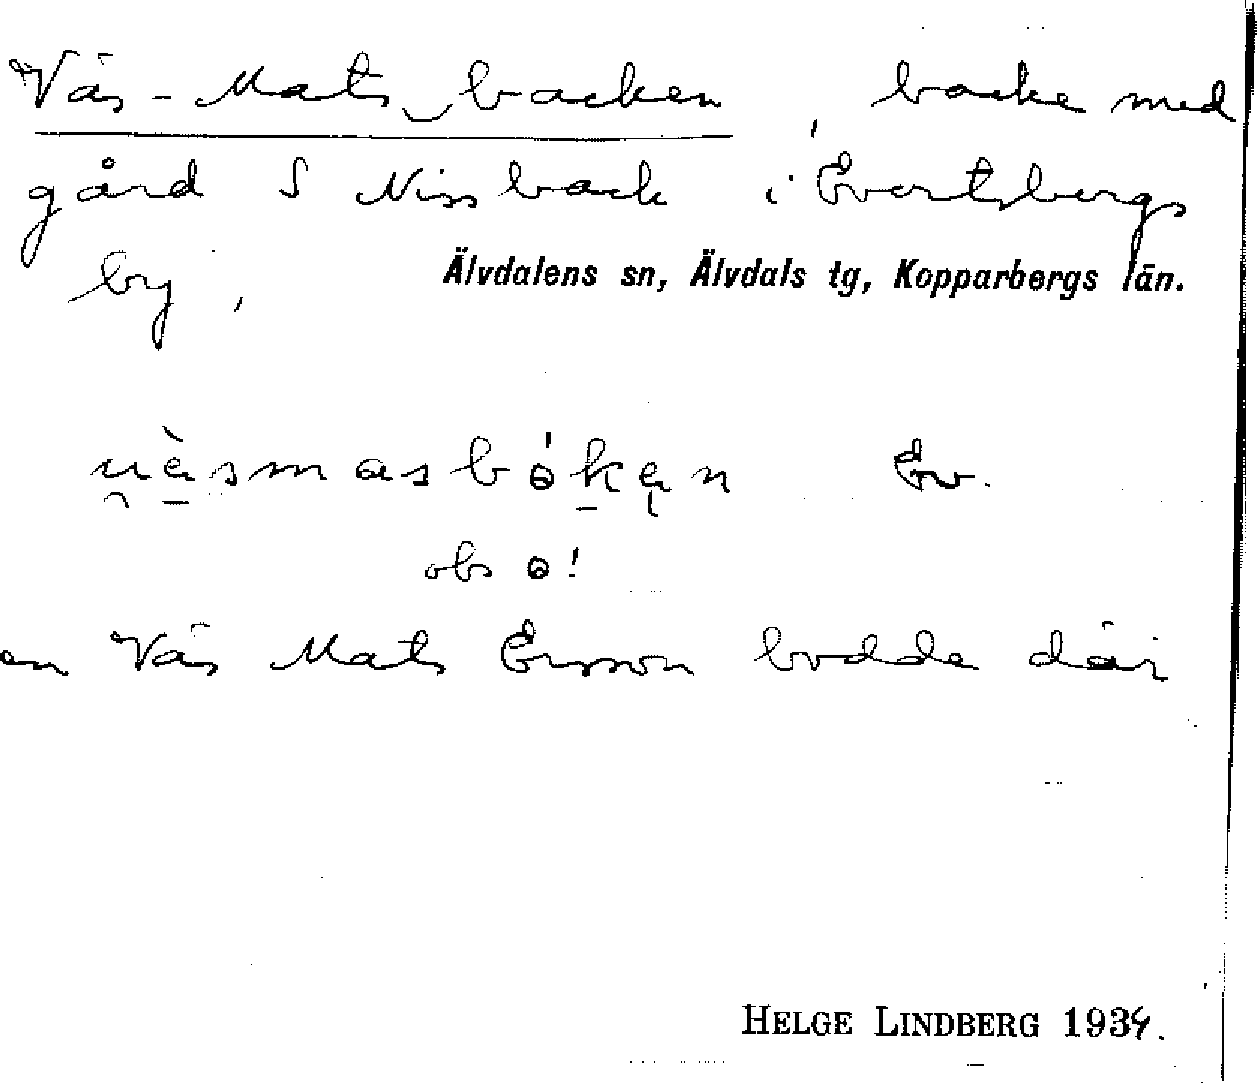 Väs-Mats backen, backe med
gård S Nissback i Evertsbergs
by, Älvdalens sn, Älvdals tg, Kopparbergs län.
Ev.
obs ɵ!
en Väs Mats Ersson bodde där
HELGE LINDBERG 1934.